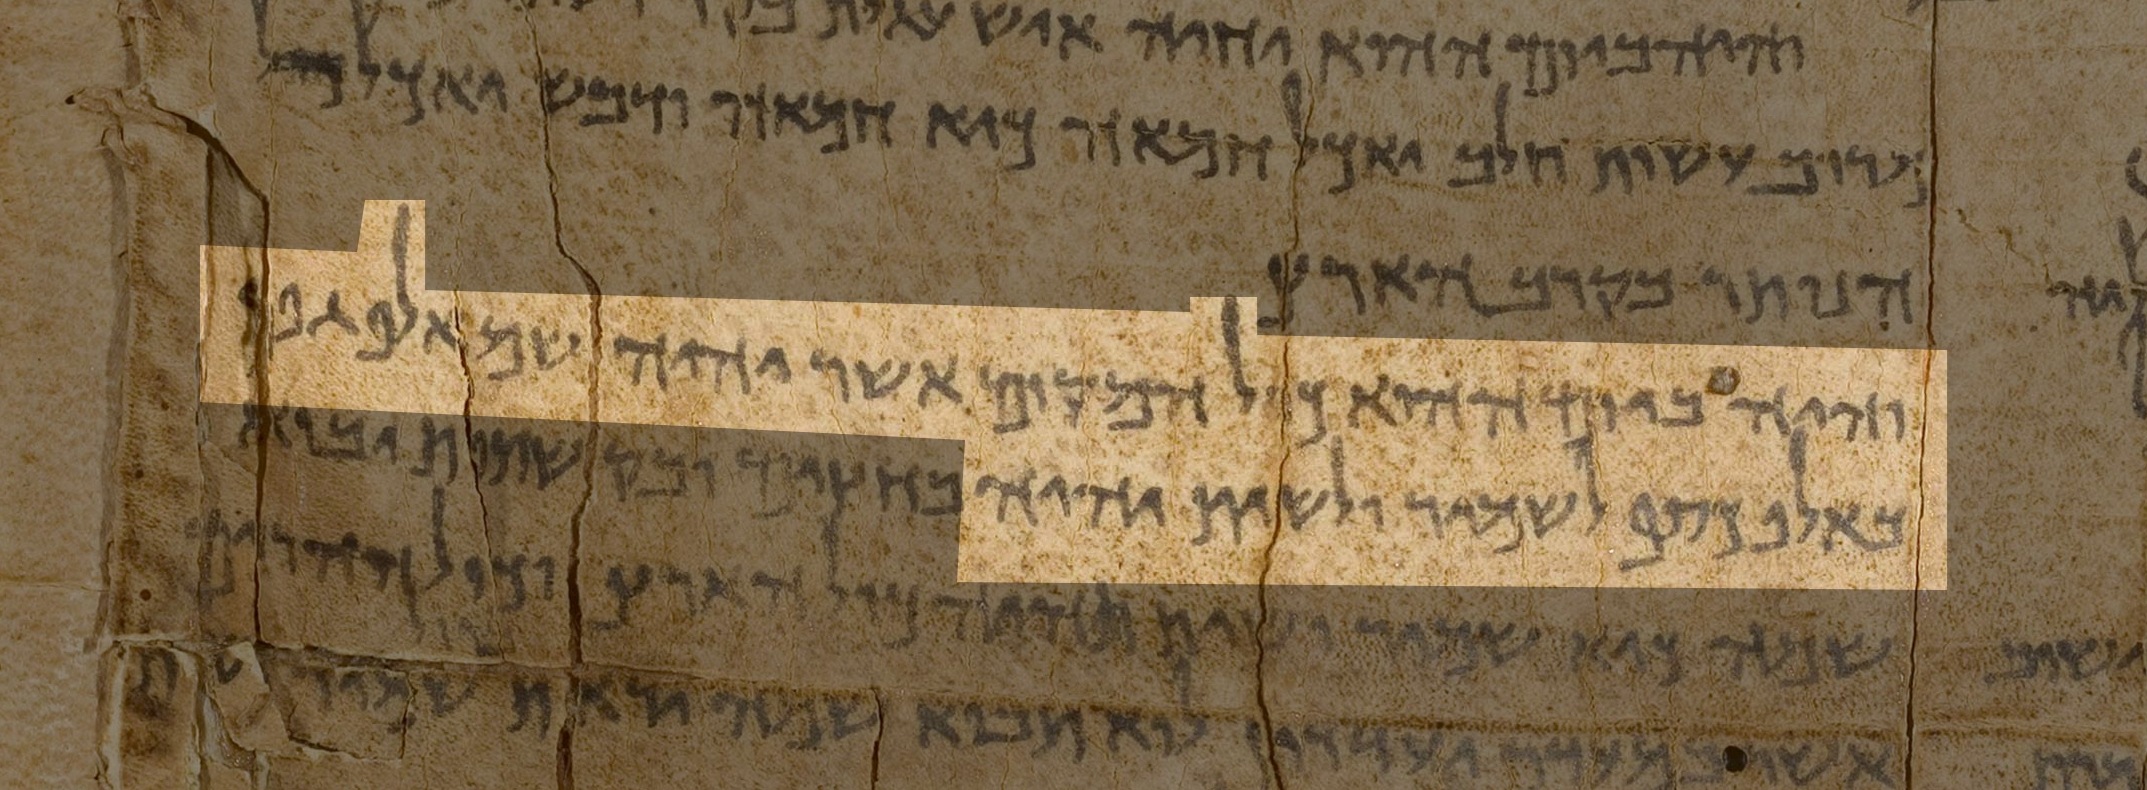 והיה ביום ההוא יחיה איש עגלת בקר
מרוב עשות חלב יאכל חמאה כיא חמאה ודבש יאכל
הנותר בקרב הארץ
והיה ביום ההוא כול המקום אשר יהיה שם אלף גפן
באלף כסף לשמיר ולשית יהיה בחצים ובקשתות יבוא
שמה כיא שמיר ושית תהיה כול הארץ וכול ההרים
אשר במעדר יעדרון לוא תבוא שמה יראת שמיר